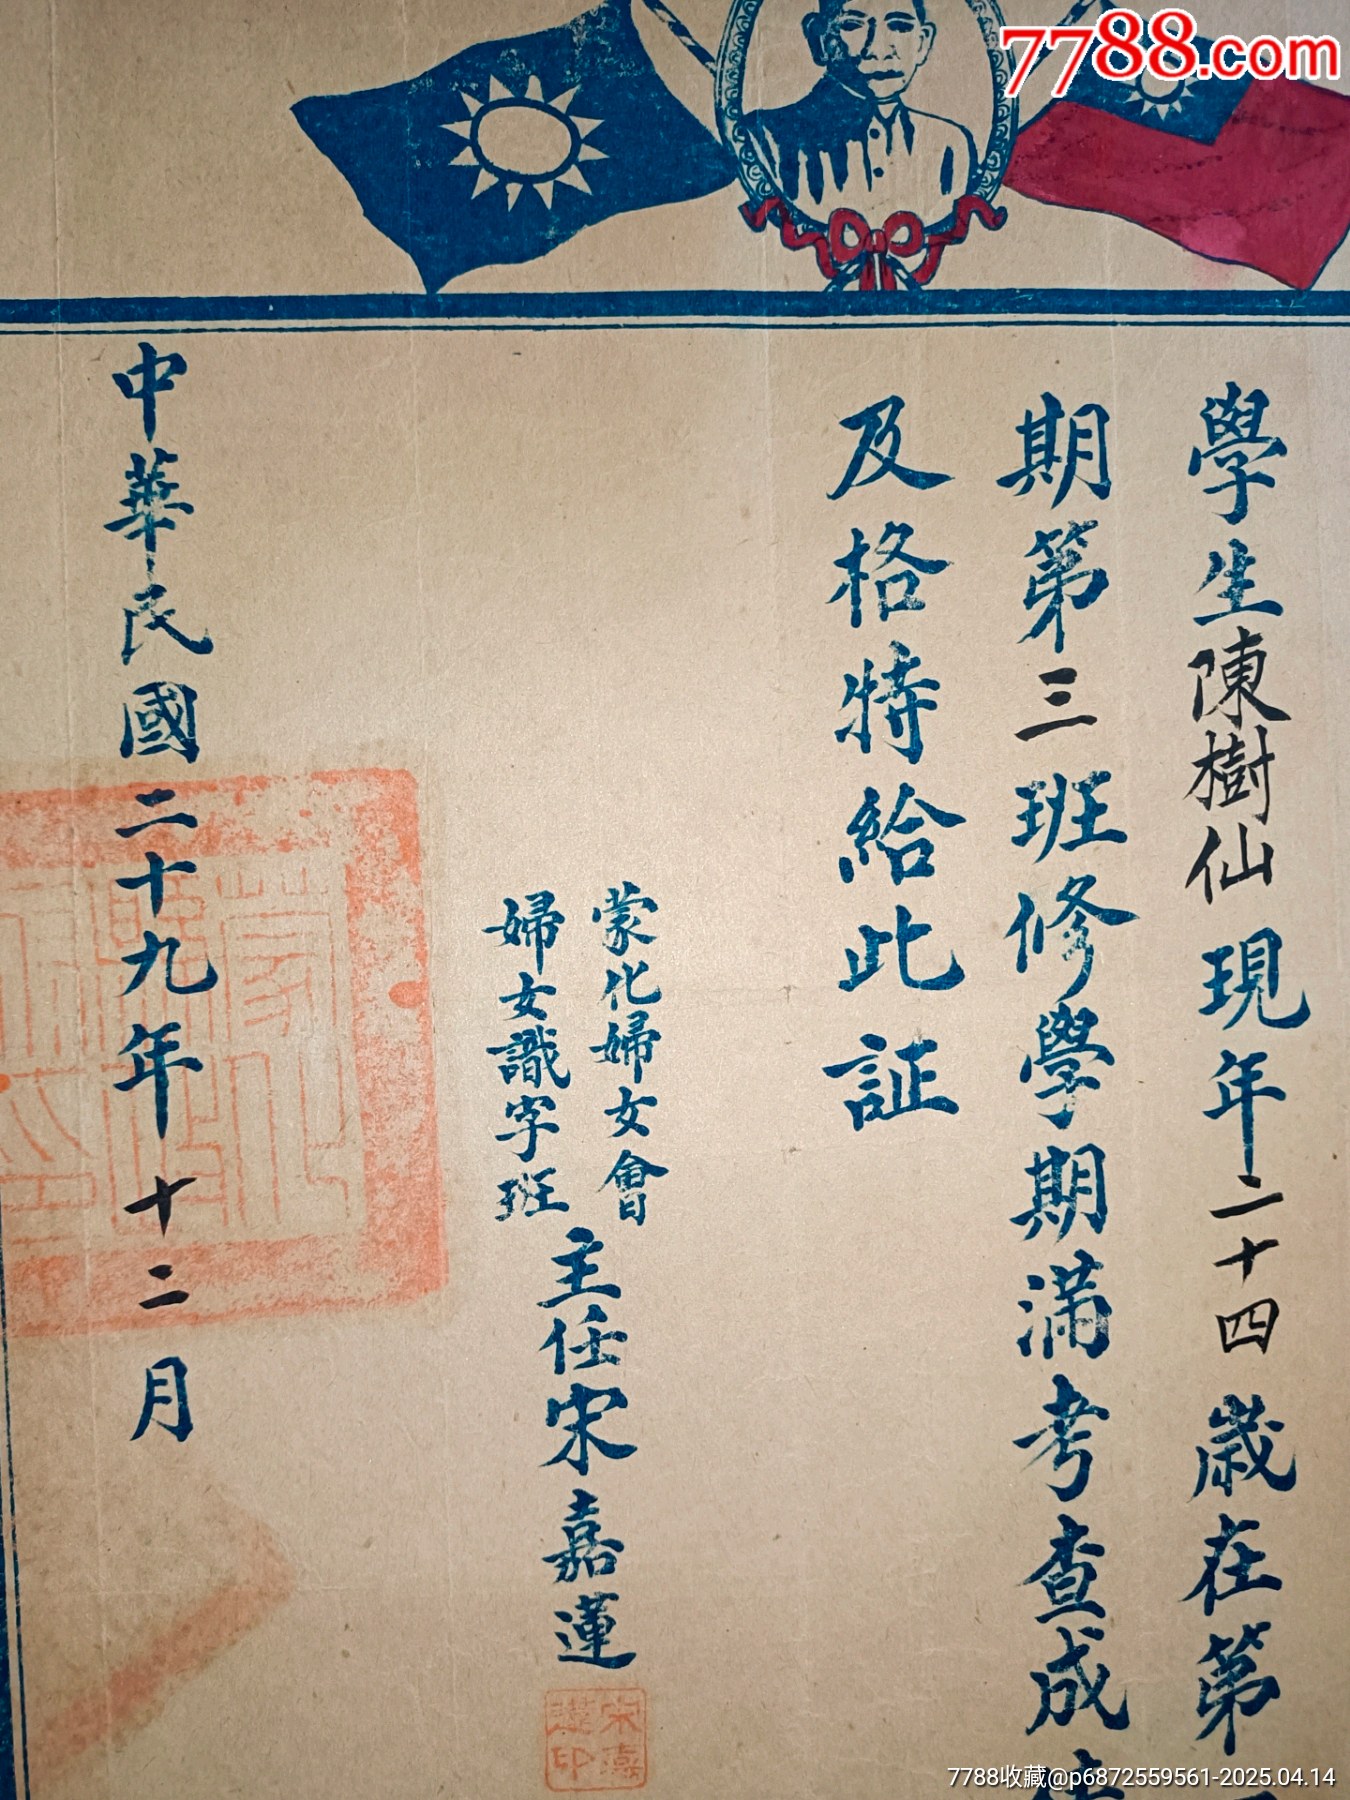 7788.com
學生陳樹仙現年二十四歲在第
期第三班修學期滿考查成
及格特給此証
蒙化婦女會
婦女識字班
主任宋嘉蓮
宋嘉蓮印
中華民國二十九年十二月
7788收藏@p6872559561-2025.04.14